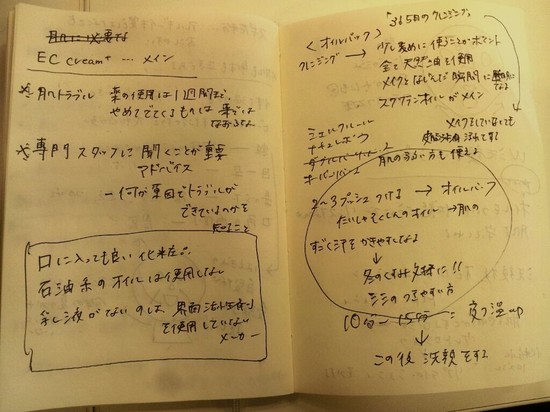 EC cream+ … メイン
※肌トラブル 薬の使用は1週間まで、
やめてでてくるものは薬では
なおらない
※専門スタッフに聞くことが重要
アドバイス
ー何が原因でトラブルが
できているのかを
知ること
口に入っても良い化粧品。
石油系のオイルは使用しない
乳液がないのは 界面活性剤
を使用していない
メーカー
"365日のクレンジング"
<オイルパック>
クレンジング → 少し多めに使うことがポイント
全て天然の油を使用
メイクとなじんだ瞬間に
スクワランオイルがメイン
メイクをしていなくても
ミュルクルール
ナチュレボウ
肌の弱い方も使える
2〜3プッシュつける → オイルパック
オイル → 肌の
すごく汗をかきやすくなる
冬のくすみ対策に!!
シミのできやすい方
10分〜15分 =
温up
この後 洗顔をする